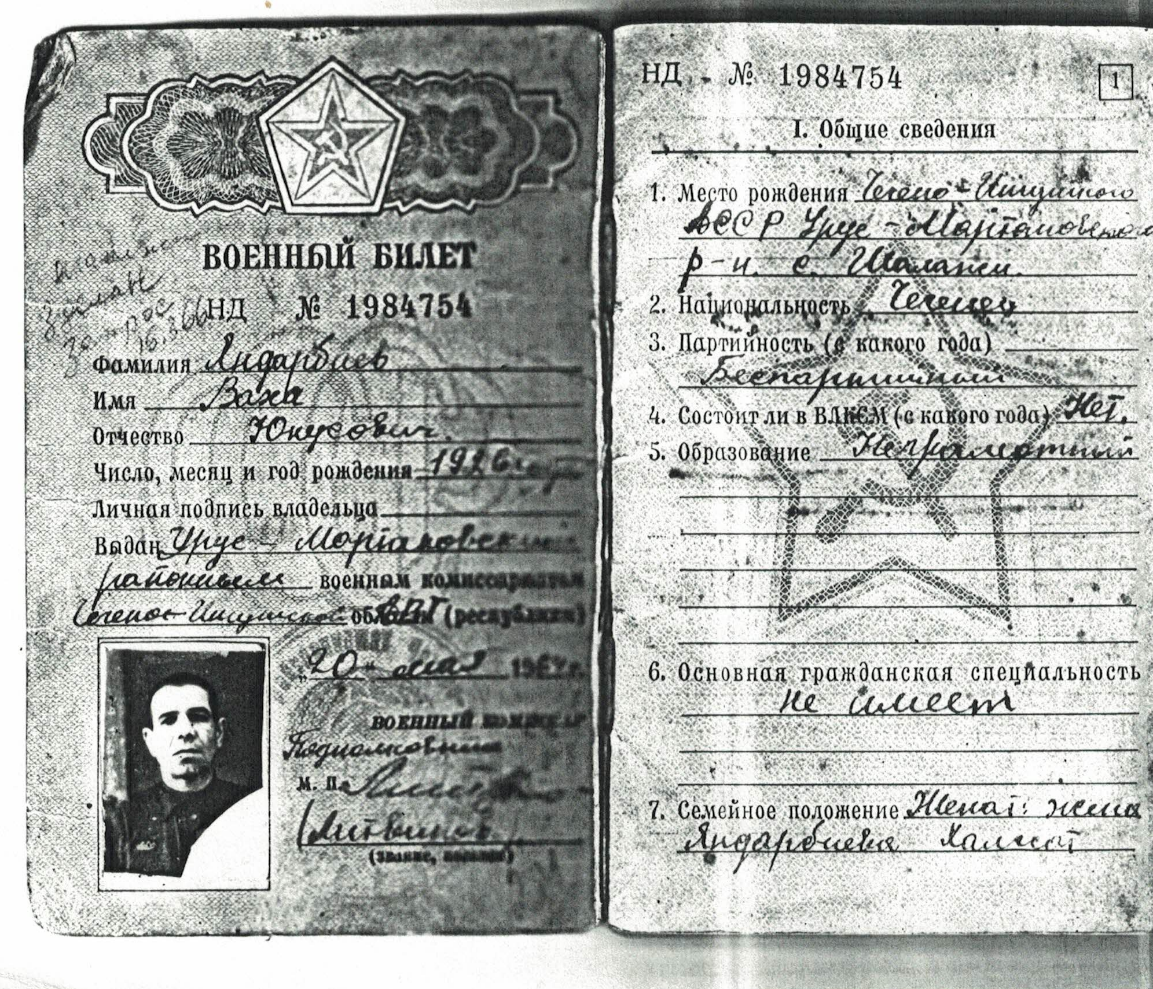 ВОЕННЫЙ БИЛЕТ
НД № 1984754
Фамилия Яндарбиев
Имя Ваха
Отчество Юнусович
Число, месяц и год рождения 1926
Личная подпись владельца
Выдан Урус-Мартановским
районным военным комиссариатом
(республики)
"20" мая
военный комиссар
Подполковник
М. П.
(Литвинов)
НД - № 1984754
1
I. Общие сведения
1. Место рождения Чечено-Ингушская
АССР Урус-Мартановский
р-н. с. Шалажи
2. Национальность Чеченец
3. Партийность (с какого года)
Беспартийный
4. Состоит ли в ВЛКСМ (с какого года) Нет.
5. Образование Неграмотный
6. Основная гражданская специальность
не имеет
7. Семейное положение Женат: жена
Яндарбиева